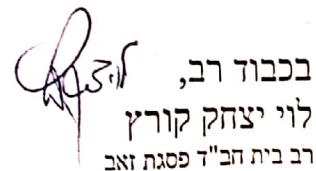 בכבוד רב,
לוי יצחק קורץ
רב בית חב"ד פסגת זאב